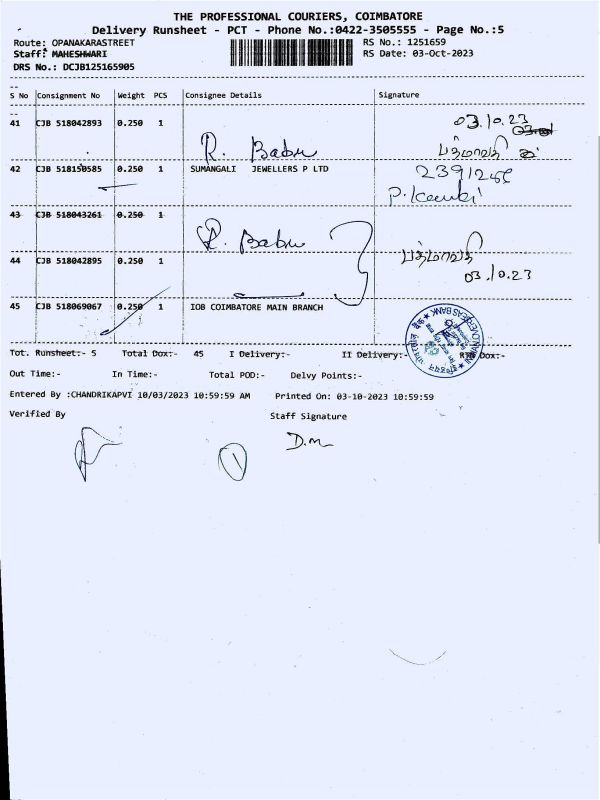 THE PROFESSIONAL COURIERS, COIMBATORE
Delivery Runsheet - PCT - Phone No.:0422-3505555 - Page No.:5
Route: OPANAKARASTREET RS No.: 1251659
Staff: MAHESHWARI RS Date: 03-Oct-2023
DRS No.: DCJB125165905
S No Consignment No Weight PCS Consignee Details Signature
03.10.23
41 CJB 518042893 0.250 1
R. Babu பத்மாவதி
42 CJB 518150585 0.250 1 SUMANGALI JEWELLERS P LTD
43 CJB 518043261 0.250 1
R. Babu பத்மாவதி
44 CJB 518042895 0.250 1
03.10.23
45 CJB 518069067 0.250 1 IOB COIMBATORE MAIN BRANCH
Tot. Runsheet:- 5 Total Dox:- 45 I Delivery:- II Delivery:- Dox:-
Out Time:- In Time:- Total POD:- Delvy Points:-
Entered By :CHANDRIKAPVI 10/03/2023 10:59:59 AM Printed On: 03-10-2023 10:59:59
Verified By Staff Signature
D.m